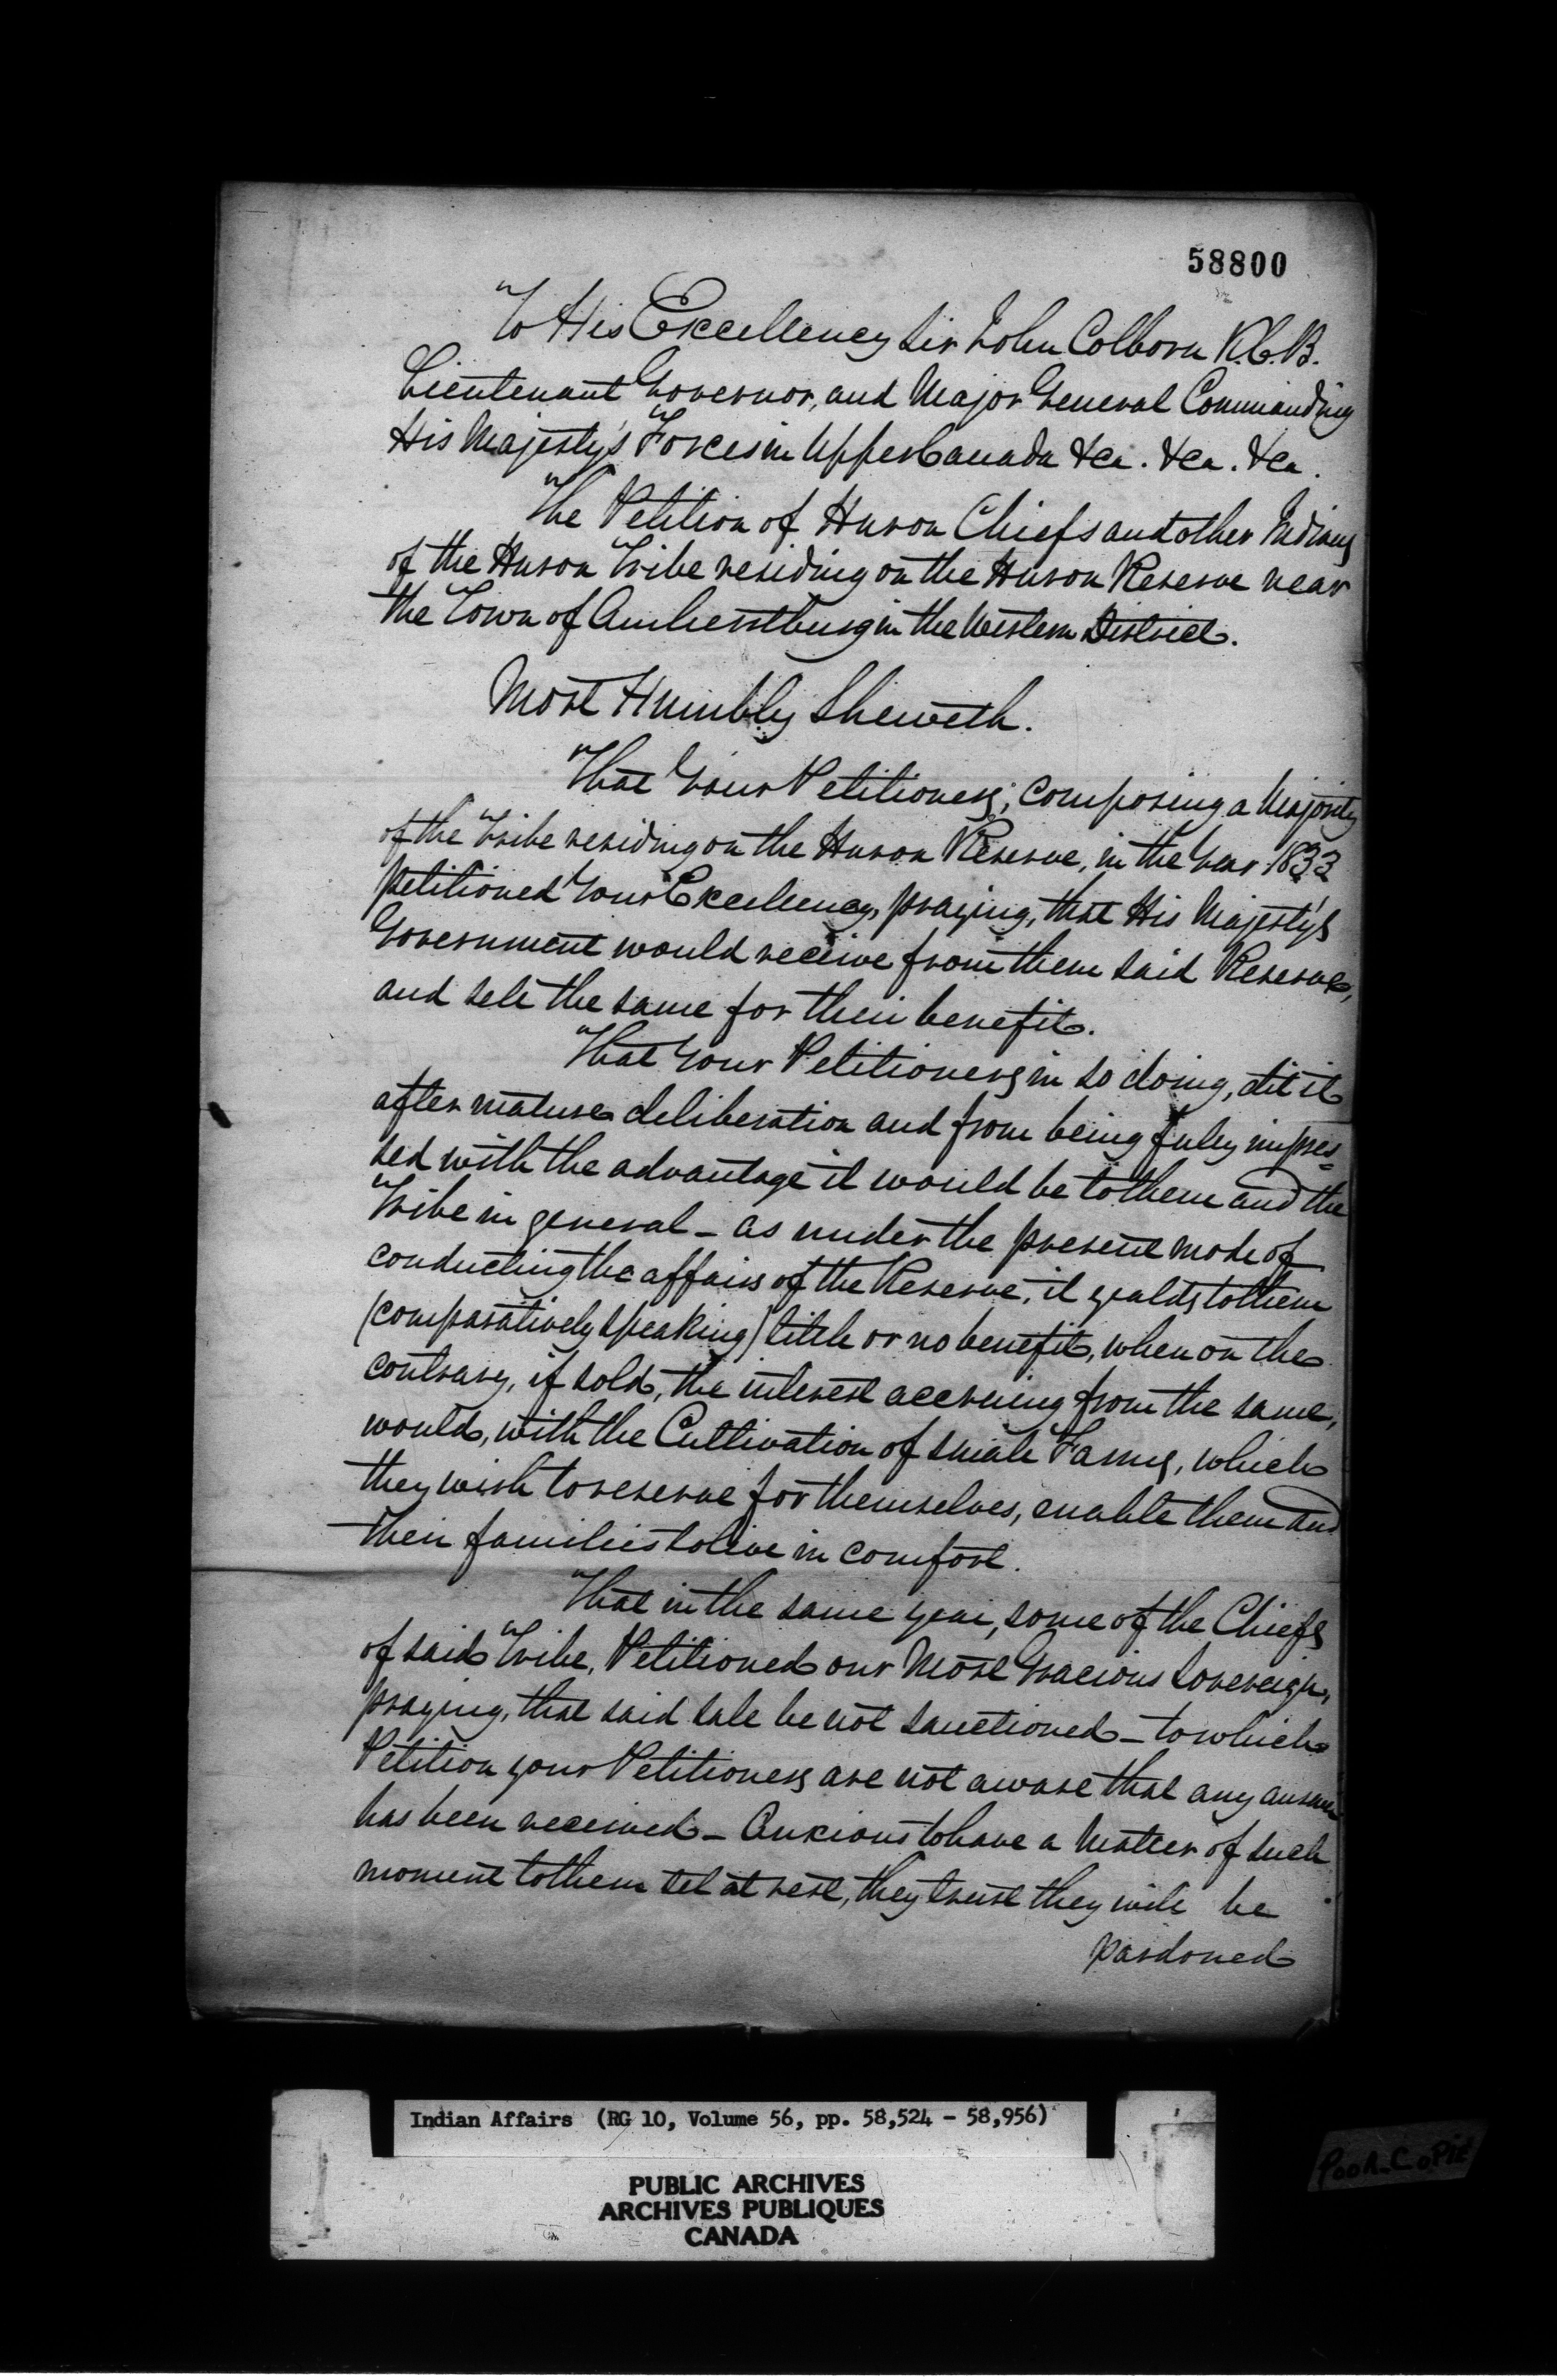 58800
To His Excellency Sir John Colborn K.C.B.
Lieutenant Governor, and Major General Commanding
His Majesty's Forces in Upper Canada &ca. &ca. &ca.
The Petition of Huron Chiefs and other Indians
of the Huron Tribe residing on the Huron Reserve near
the Town of Amherstburg in the Western District.
Most Humbly Sheweth.
That Your Petitioners, composing a Majority
of the Tribe residing on the Huron Reserve, in the Year 1833
petitioned Your Excellency, praying, that His Majesty's
Government would receive from them said Reserve,
and sell the same for their benefit.
That Your Petitioners in so doing, did it
after mature deliberation and from being fully impres=
sed with the advantage it would be to them and the
Tribe in general - as under the present mode of
conducting the affairs of the Reserve, it yealds to them
(comparatively speaking) little or no benefit, when on the
contrary, if sold, the interest accruing from the same,
would, with the Cultivation of small Farms, which
they wish to reserve for themselves, enable them and
their families to live in comfort.
That in the same year, some of the Chiefs
of said Tribe, Petitioned our Most Gracious Sovereign,
praying, that said sale be not sanctioned - to which
Petition your Petitioners are not aware that any answer
has been received - Anxious to have a Matter of such
moment to them set at rest, they trust they will be
pardoned
Indian Affairs (RG 10, Volume 56, pp. 58,524 - 58,956)
PUBLIC ARCHIVES
ARCHIVES PUBLIQUES
CANADA
Poor Copie